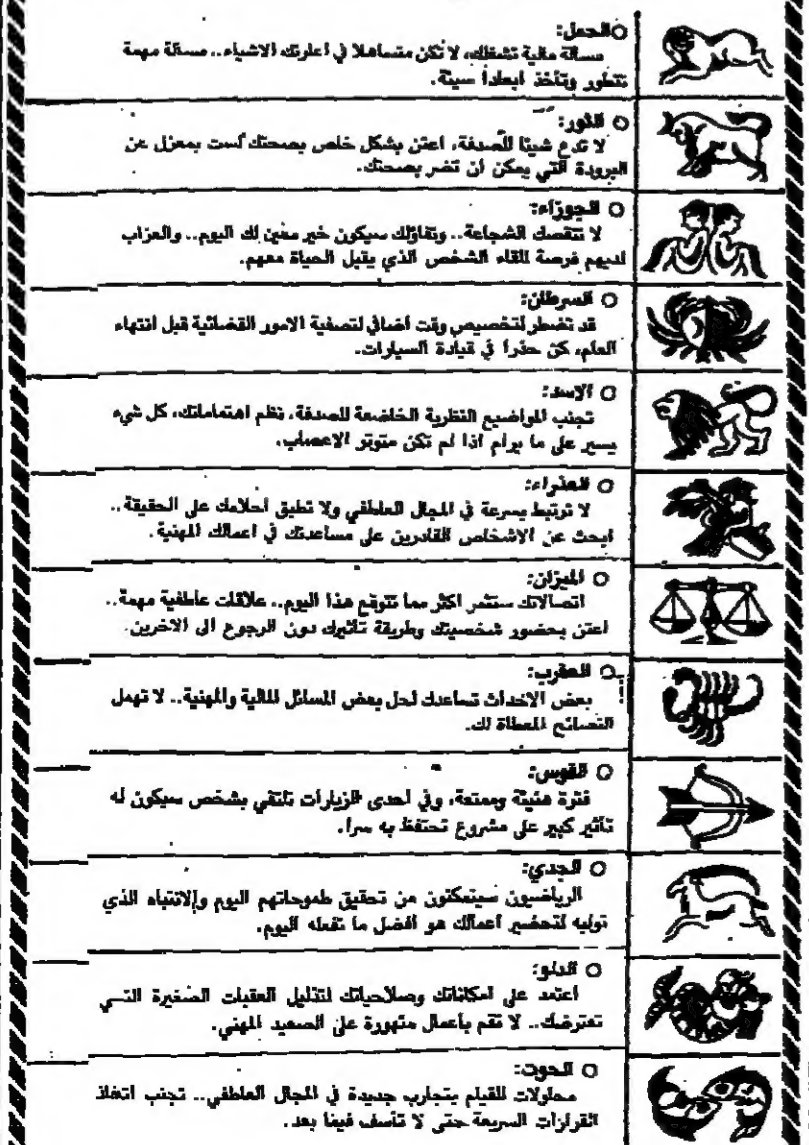 ○ الحمل:
مسألة مالية تشغلك، لا تكن متساهلا في اعارتك الاشياء.. مسألة مهمة
تتطور وتأخذ ابعاداً سيئة.
○ الثور:
لا تدع شيئا للصدفة، اعتن بشكل خاص بصحتك لست بمعزل عن
البرودة التي يمكن أن تضر بصحتك.
○ الجوزاء:
لا تنقصك الشجاعة.. وتفاؤلك سيكون خير معين لك اليوم.. والعزاب
لديهم فرصة للقاء الشخص الذي يقبل الحياة معهم.
○ السرطان:
قد تضطر لتخصيص وقت اضافي لتصفية الامور القضائية قبل انتهاء
العام، كن حذرا في قيادة السيارات.
○ الاسد:
تجنب المواضيع النظرية الخاضعة للصدفة، نظم اهتماماتك، كل شيء
يسير على ما يرام اذا لم تكن متوتر الاعصاب.
○ العذراء:
لا ترتبط بسرعة في المجال العاطفي ولا تطبق احلامك على الحقيقة..
ابحث عن الاشخاص القادرين على مساعدتك في اعمالك المهنية.
○ الميزان:
اتصالاتك ستثمر اكثر مما تتوقع هذا اليوم.. علاقات عاطفية مهمة..
اعتن بحضور شخصيتك وطريقة تأثيرك دون الرجوع الى الاخرين.
○ العقرب:
بعض الاحداث تساعدك لحل بعض المسائل المالية والمهنية.. لا تهمل
النصائح المعطاة لك.
○ القوس:
فترة هنيئة وممتعة، وفي احدى الزيارات تلتقي بشخص سيكون له
تأثير كبير على مشروع تحتفظ به سرا.
○ الجدي:
الرياضيون سيتمكنون من تحقيق طموحاتهم اليوم والانتباه الذي
توليه لتحضير أعمالك هو أفضل ما تفعله اليوم.
○ الدلو:
اعتمد على امكاناتك وصلاحياتك لتذليل العقبات الصغيرة التي
تعترضك.. لا تقم بأعمال متهورة على الصعيد المهني.
○ الحوت:
محاولات للقيام بتجارب جديدة في المجال العاطفي.. تجنب اتخاذ
القرارات السريعة حتى لا تأسف فيما بعد.